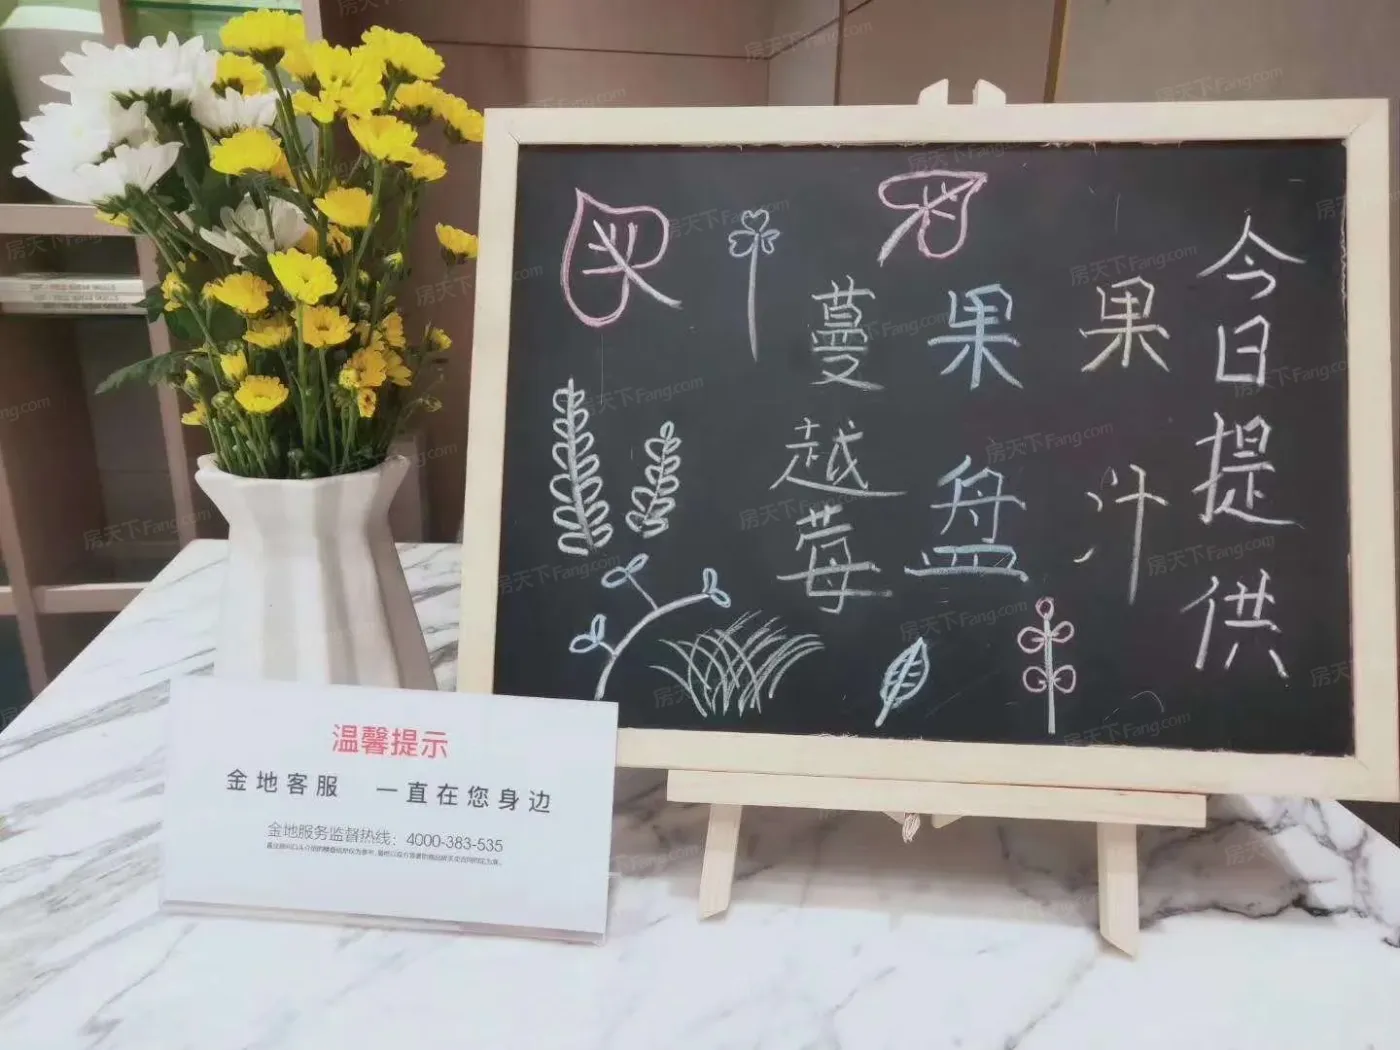 今日提供
果汁
果盘
蔓越莓
温馨提示
金地客服 一直在您身边
金地服务监督热线：4000-383-535
房天下Fang.com